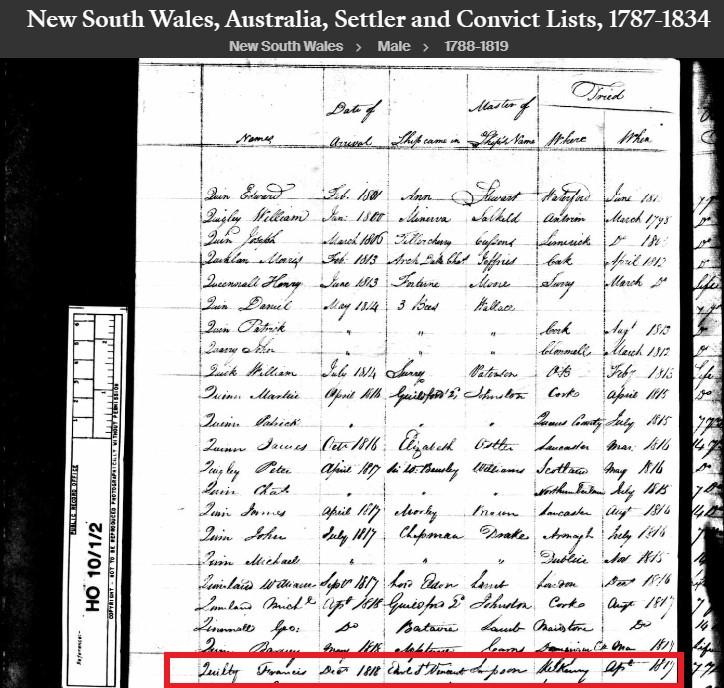 New South Wales, Australia, Settler and Convict Lists, 1787-1834
New South Wales > Male > 1788-1819
Tried
Names Date of Arrival Ship came in Master of Ship's Name Where When
Quin Edward Feb. 1801 Ann Stewart Waterford June
Quigley William Jan: 1800 Minerva Salkeld Antrim March 1798
Quin Joseph March 1806 Tellicherry Cussons Limerick Do
Morris Feb 1813 Arch Duke Chas Jeffries Cork April 1812
Henry June 1813 Fortune Moore Surry March Do
Quin Daniel May 1814 3 Bees Wallace
Quin Patrick " " " Cork Augt 1813
Quarry John " " " Clonmell March 1812
Quick William July 1814 Surry Paterson OB Feby 1813
Quinn Martin April 1816 Guildford 2d Johnston Cork April 1815
Quinn Patrick " " " Queens County July 1815
Quinn James Octr 1816 Elizabeth Ostler Lancaster Mar: 1816
Quigley Peter April 1817 Sir Wm Bensley Williams Scotland May 1816
Quin Chas " " " July 1815
Quin James April 1817 Morley Brown Lancaster Augt 1816
Quin John July 1817 Chapman Drake Armagh July 1816
Quin Michael " " " Dublin Nov 1815
William Septr 1817 Lord Eldon Lamb London Decr 1816
Michl Apl 1818 Guildford 2d Johnston Cork Augt 1817
Geo: Do Batavia Lamb Maidstone Do
Quin 1818 Neptune Carns Mar 1817
Quilty Francis Decr 1818 Earl St Vincent Simpson Kilkenny Apl 1817
PUBLIC RECORD OFFICE
Reference:-
HO 10/1/2
COPYRIGHT - NOT TO BE REPRODUCED PHOTOGRAPHICALLY WITHOUT PERMISSION